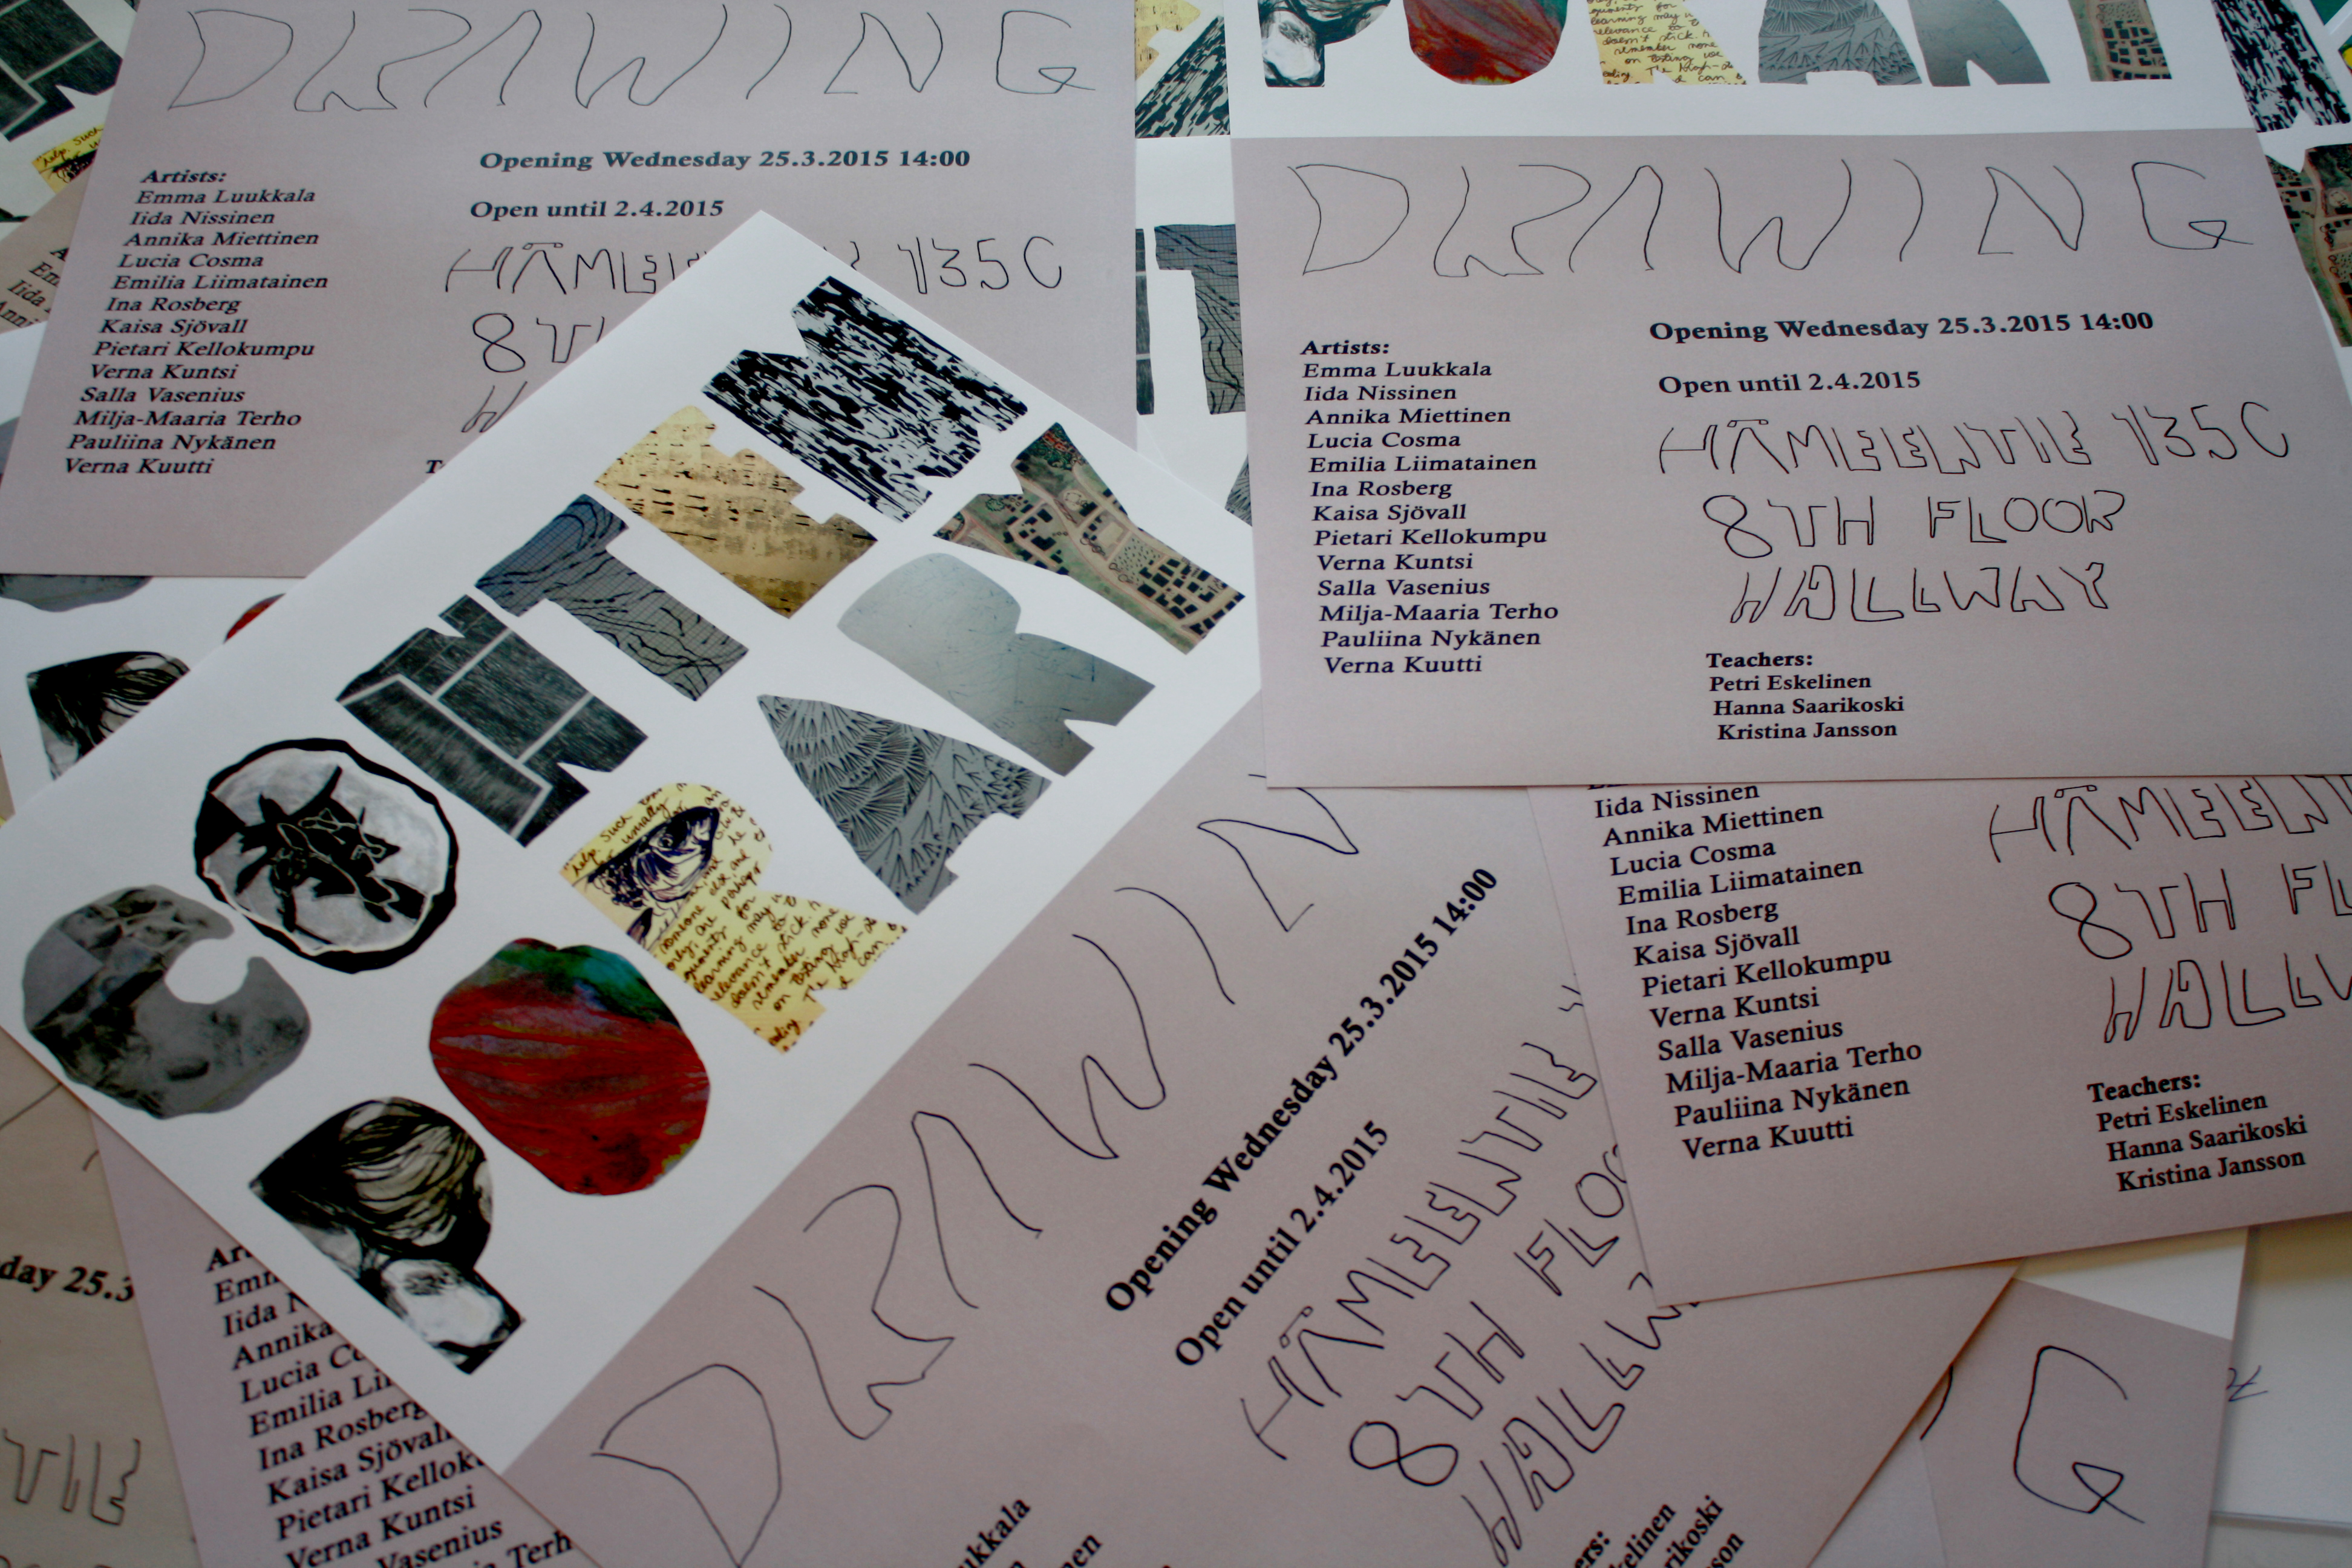 DRAWING
Opening Wednesday 25.3.2015 14:00
Artists:
Emma Luukkala
Iida Nissinen
Annika Miettinen
Lucia Cosma
Emilia Liimatainen
Ina Rosberg
Kaisa Sjövall
Pietari Kellokumpu
Verna Kuntsi
Salla Vasenius
Milja-Maaria Terho
Pauliina Nykänen
Verna Kuutti
Open until 2.4.2015
135C
8T
PORARY
DRAWING
Opening Wednesday 25.3.2015 14:00
Open until 2.4.2015
Artists:
Emma Luukkala
Iida Nissinen
Annika Miettinen
Lucia Cosma
Emilia Liimatainen
Ina Rosberg
Kaisa Sjövall
Pietari Kellokumpu
Verna Kuntsi
Salla Vasenius
Milja-Maaria Terho
Pauliina Nykänen
Verna Kuutti
HÄMEENTIE 135C
8TH FLOOR
HALLWAY
Teachers:
Petri Eskelinen
Hanna Saarikoski
Kristina Jansson
CONTEM
PORARY
DRAWIN
Opening Wednesday 25.3.2015 14:00
Open until 2.4.2015
HÄMEENTIE
8TH FLOO
HALLW
ukkala
nen
ers:
kelinen
rikoski
sson
Iida Nissinen
Annika Miettinen
Lucia Cosma
Emilia Liimatainen
Ina Rosberg
Kaisa Sjövall
Pietari Kellokumpu
Verna Kuntsi
Salla Vasenius
Milja-Maaria Terho
Pauliina Nykänen
Verna Kuutti
HÄMEENT
8TH FL
HALLW
Teachers:
Petri Eskelinen
Hanna Saarikoski
Kristina Jansson
day 25.3
TIE
Art
Emm
Iida N
Annika
Lucia Co
Emilia Lii
Ina Rosberg
Kaisa Sjövall
Pietari Kelloku
Verna Kuntsi
Vasenius
Terh
G